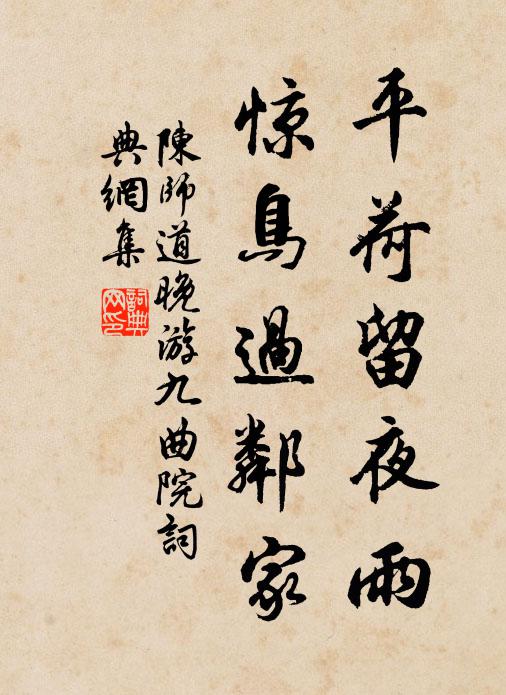 平荷留夜雨
惊鳥過鄰家
陳師道晚游九曲院詞
典網集
詞典
网印